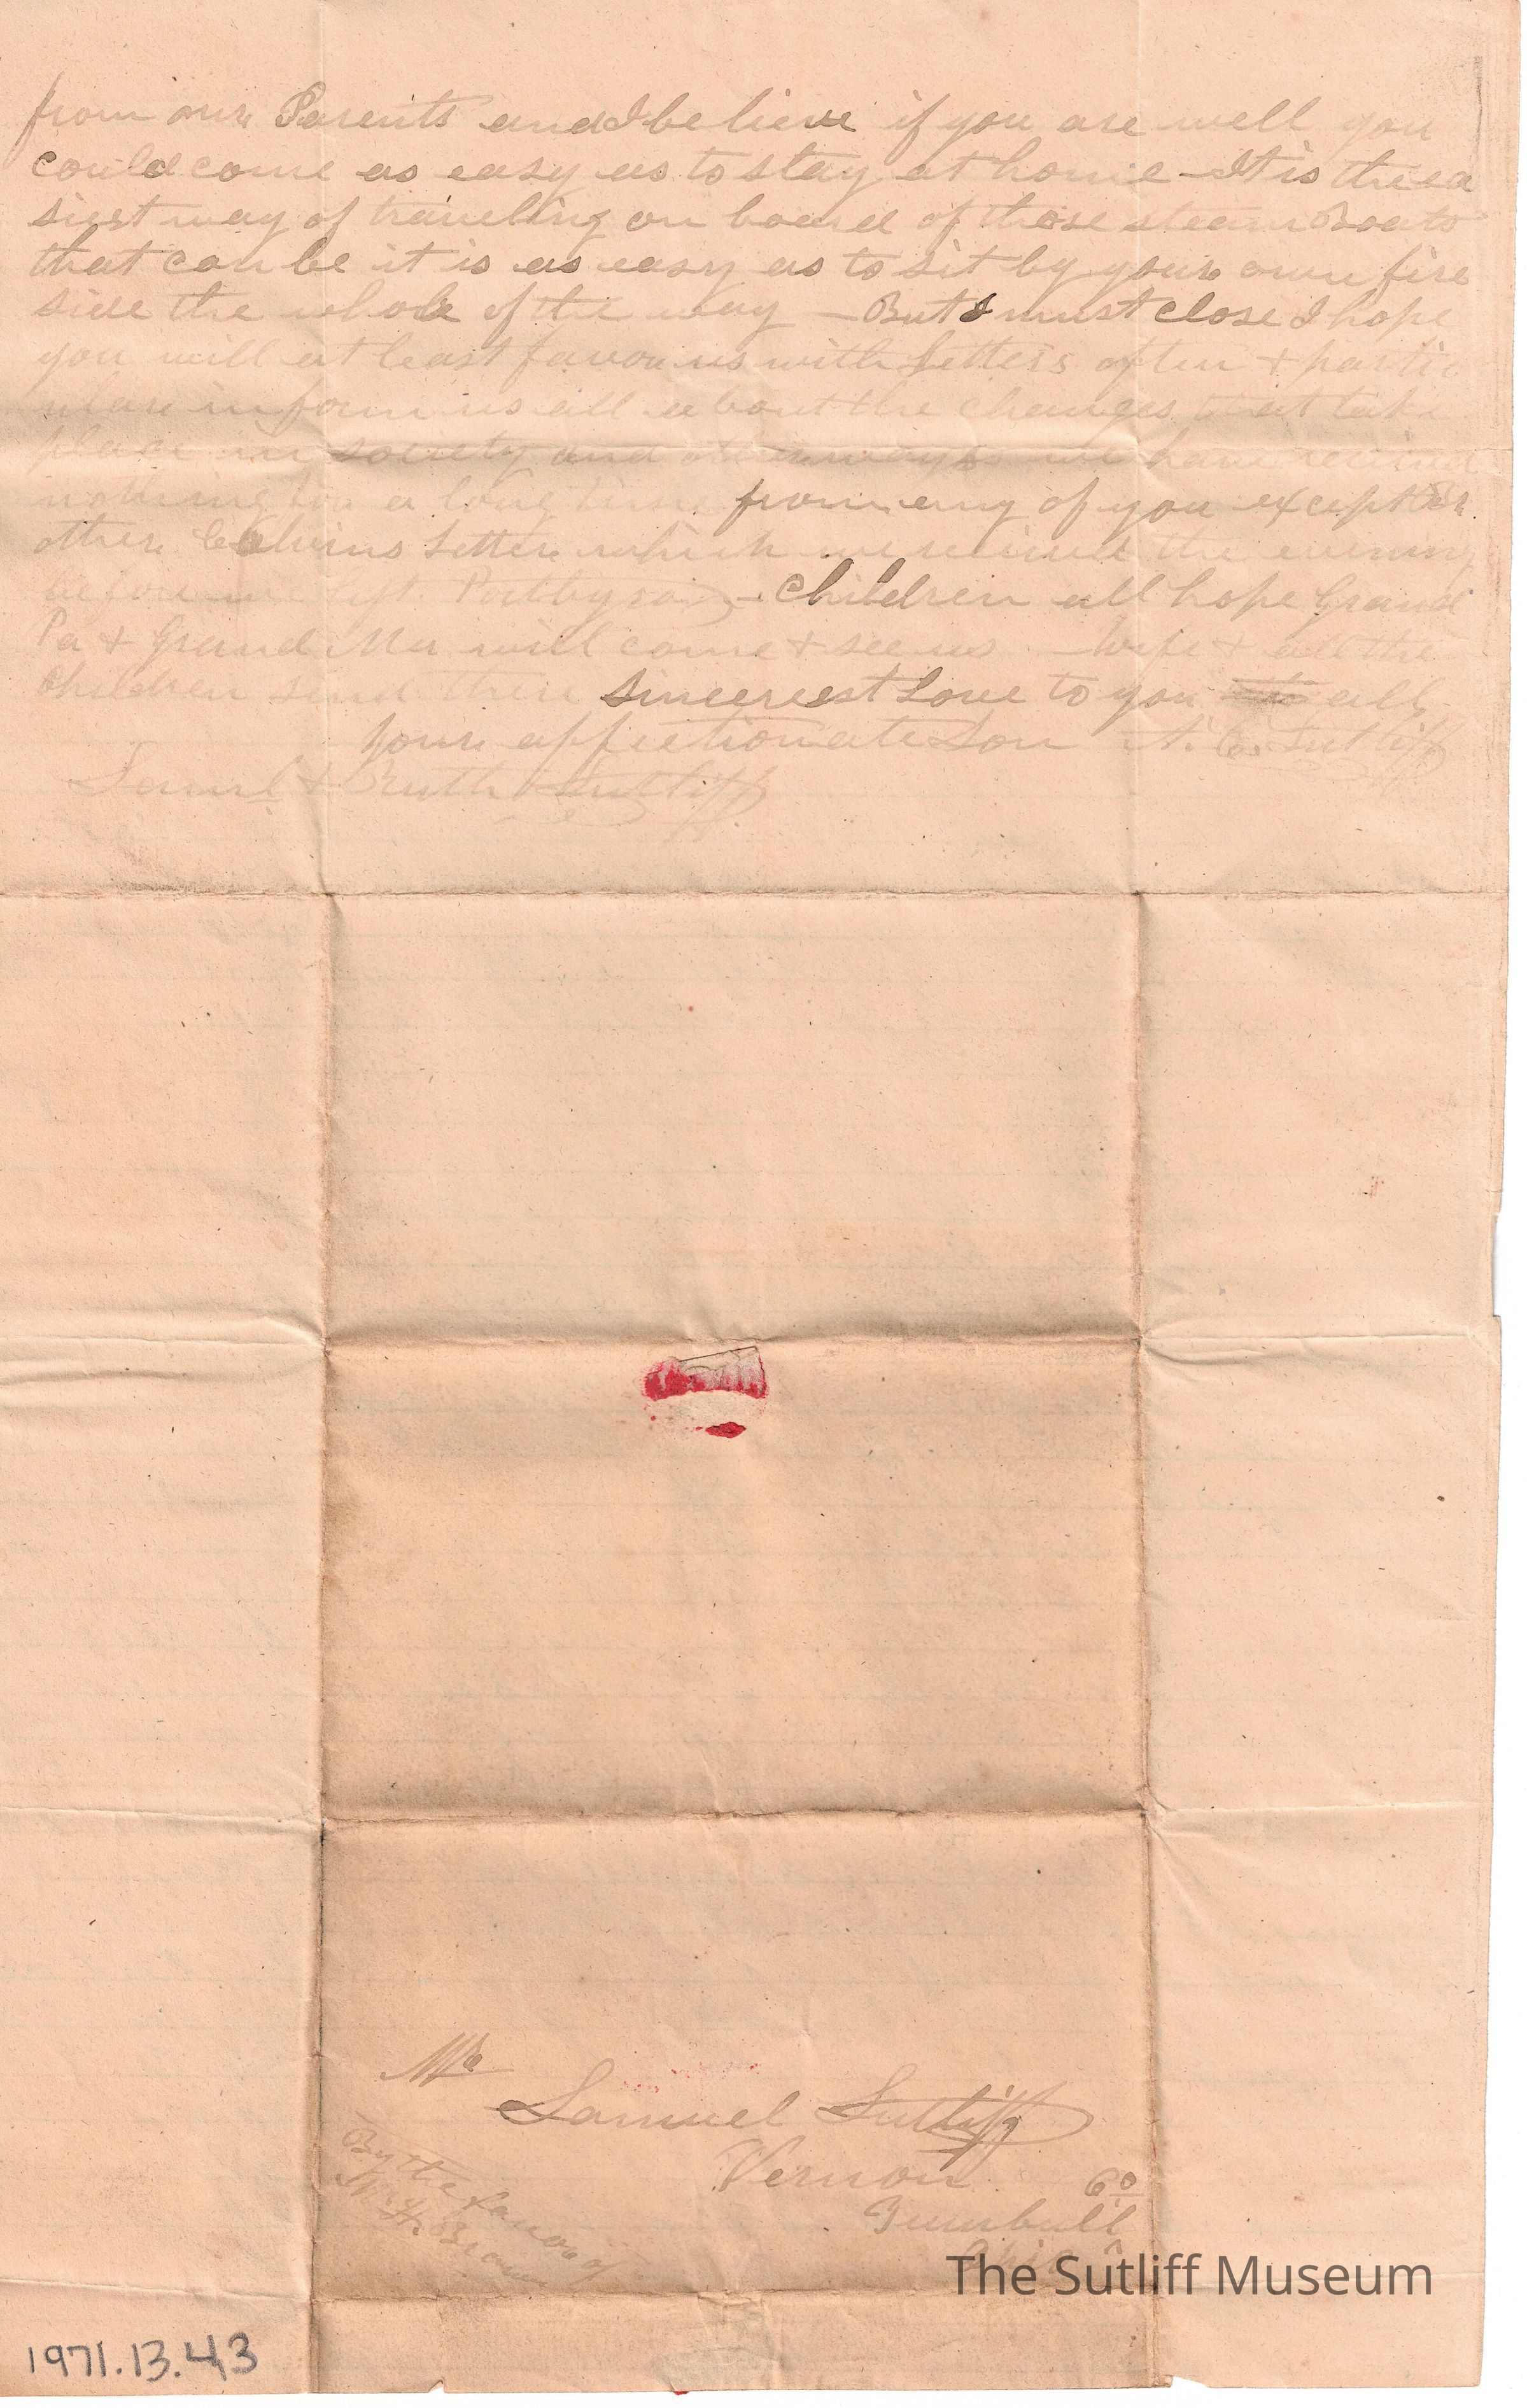 from our Parents and I believe if you are well you
could come as easy as to stay at home - It is the ea
siest way of traveling on board of those steam Boats
that can be it is as easy as to sit by your own fire
side the whole of the way - But I must close I hope
you will at least favour us with Letters often + partic
ulars inform us all about the changes that take
place in society and other ways we have received
nothing for a long time from any of you except br
other Calvins Letter which we received the evening
before we left - Children all hope Grand
Pa + Grand Ma will come + see us - Wife + all the
Children send their sincereest Love to you all
Your affectionate Son A. C. Sutliff
Saml + Ruth Sutliff
Mr
Samuel Sutliff
Vernon
Trumbull Co
Ohio
By the favor of
Mr H. Brown
The Sutliff Museum
1971.13.43